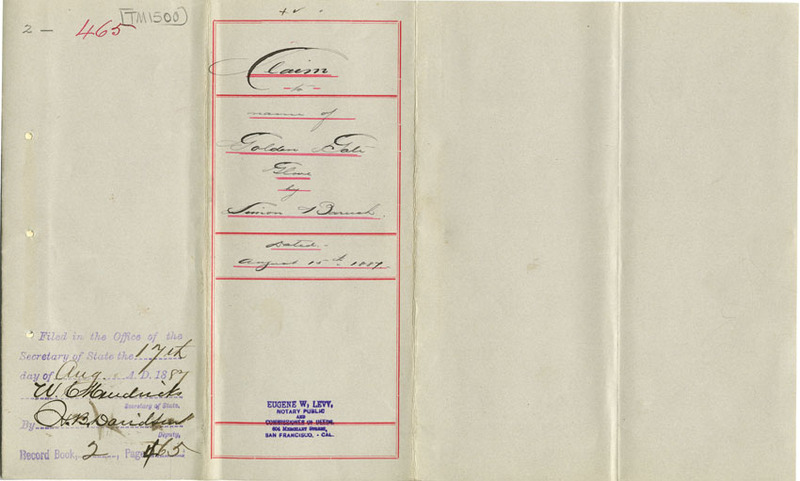 2 - 465
TM1500
Claim
to
name of
Golden Gate
Glove
by
Simon A Baruch.
Dated -
August 15th 1887
Filed in the Office of the
Secretary of State the 17th
day of Aug A.D. 1887
W. C. Hendricks
Secretary of State.
By H. B. Davidson
Deputy,
Record Book, 2, Page 465
EUGENE W. LEVY,
NOTARY PUBLIC
AND
COMMISSIONER OF DEEDS,
SAN FRANCISCO, - CAL.